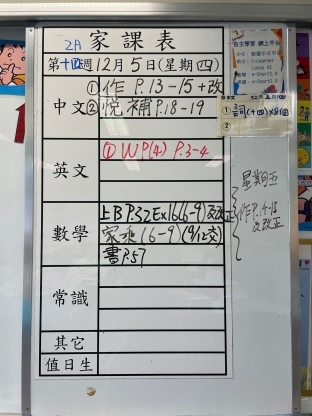 2A 家課表
第十四週12月5日(星期四)
中文
①作 P.13-15+改
②悅補P.18-19
英文
① WP(4) P.3-4
數學
上B P.32Ex16(6-9)及改正
家乘(6-9)(9/12交)
書P.57
常識
其它
值日生
自主學習 網上平台
①詞(十四)
②
星期五
作P.14-15
及改正